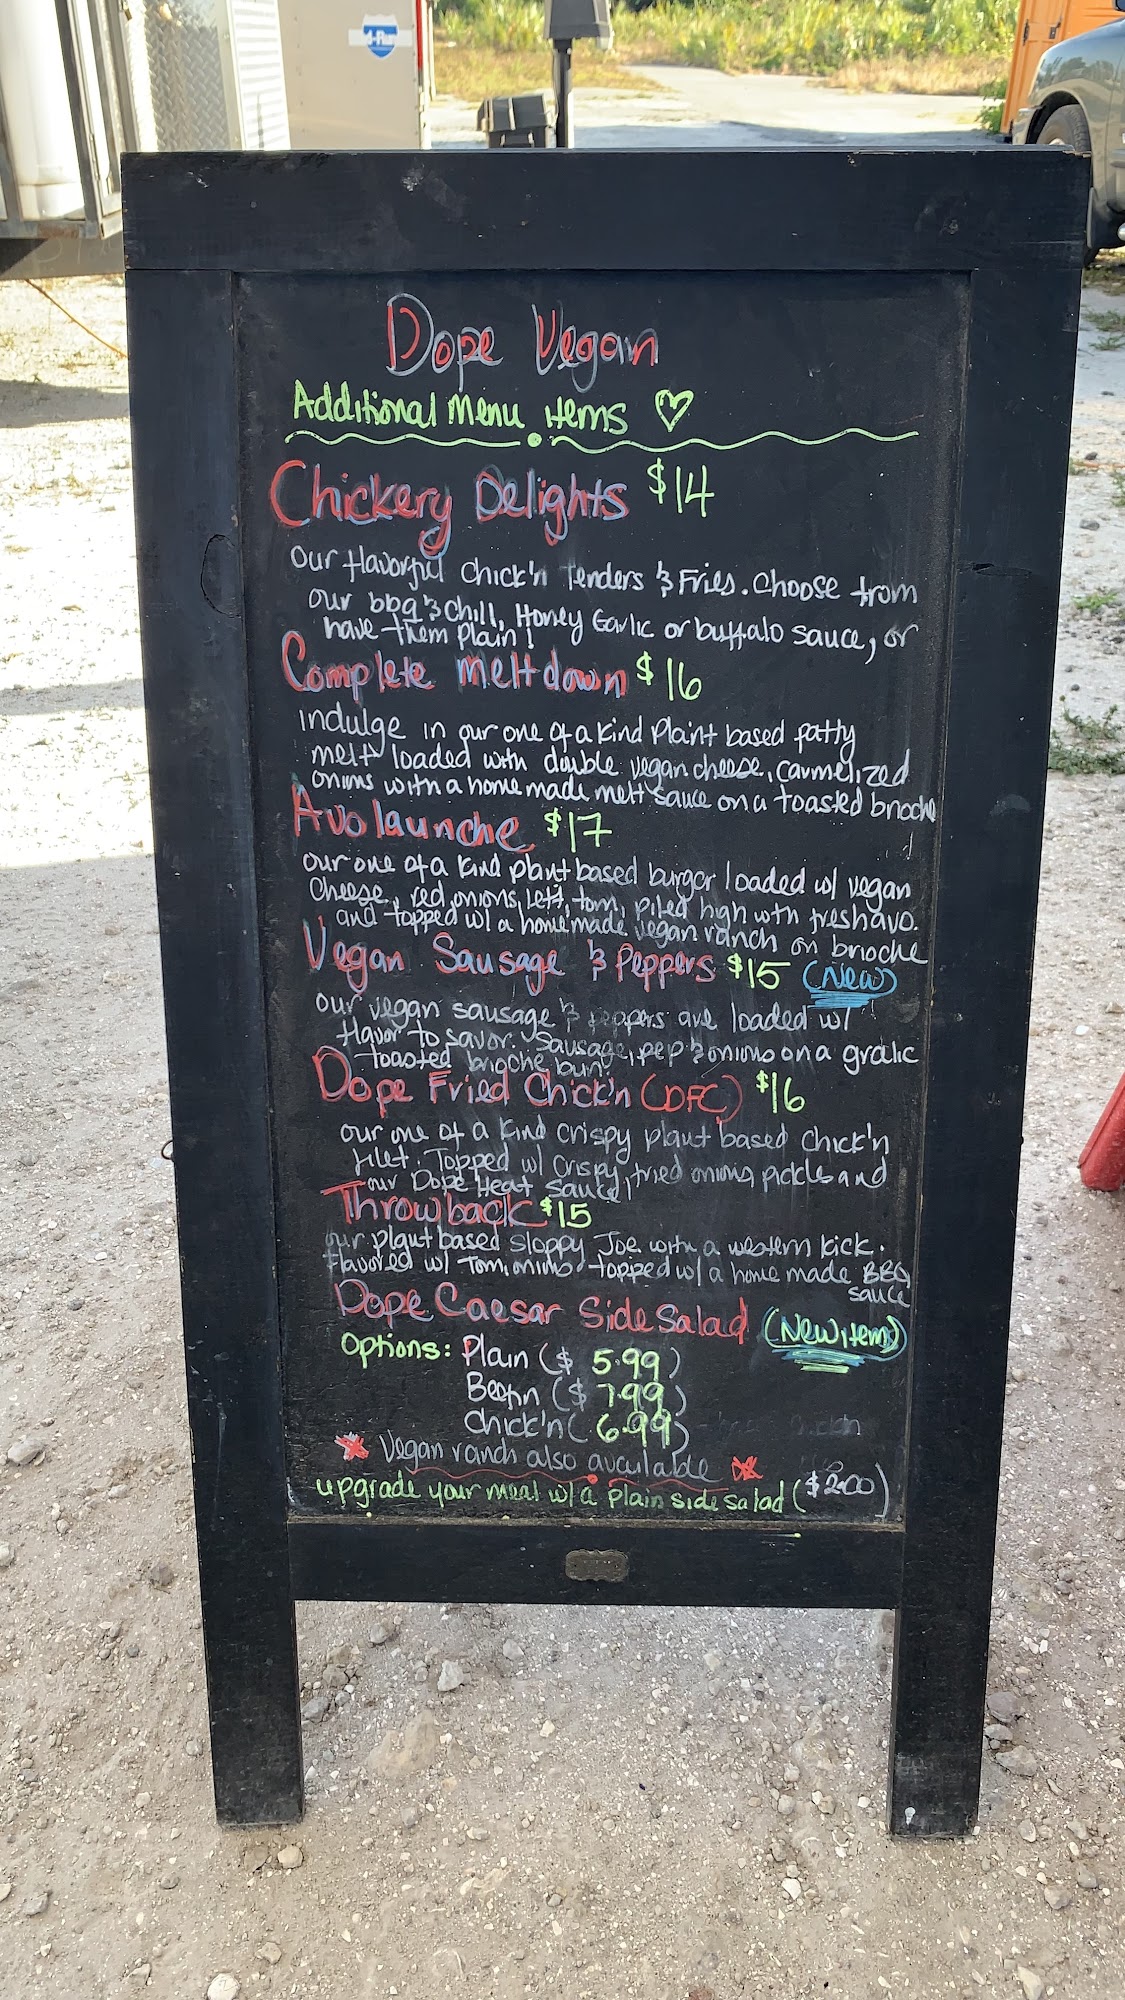 Dope Vegan
Additional Menu items ♡
Chickery Delights $14
our flavorful chick'n Tenders & Fries. Choose from
our bbq & chill, Honey Garlic or buffalo sauce, or
have them plain!
Complete Meltdown $16
indulge in our one of a kind Plant based patty
melt loaded with double vegan cheese, carmelized
onions with a homemade melt sauce on a toasted brioche
Avolaunche $17
our one of a kind plant based burger loaded w/ vegan
Cheese, red onions, Lett, tom, piled high with fresh avo.
and topped w/ a homemade vegan ranch on brioche
Vegan Sausage & Peppers $15 (New)
our vegan sausage & peppers are loaded w/
flavor to savor. Sausage, pep & onions on a gralic
toasted brioche bun!
Dope Fried Chick'n (DFC) $16
our one of a kind crispy plant based chick'n
filet. Topped w/ crispy fried onions, pickles and
our Dope Heat sauce!
Throwback $15
our plant based Sloppy Joe with a western kick.
flavored w/ Tom, onions topped w/ a home made BBQ
sauce
Dope Caesar Side Salad (New item)
Options: Plain ($ 5.99)
($ 7.99)
Chick'n ( 6.99)
Vegan ranch also available
upgrade your meal w/ a plain side salad ($2.00)